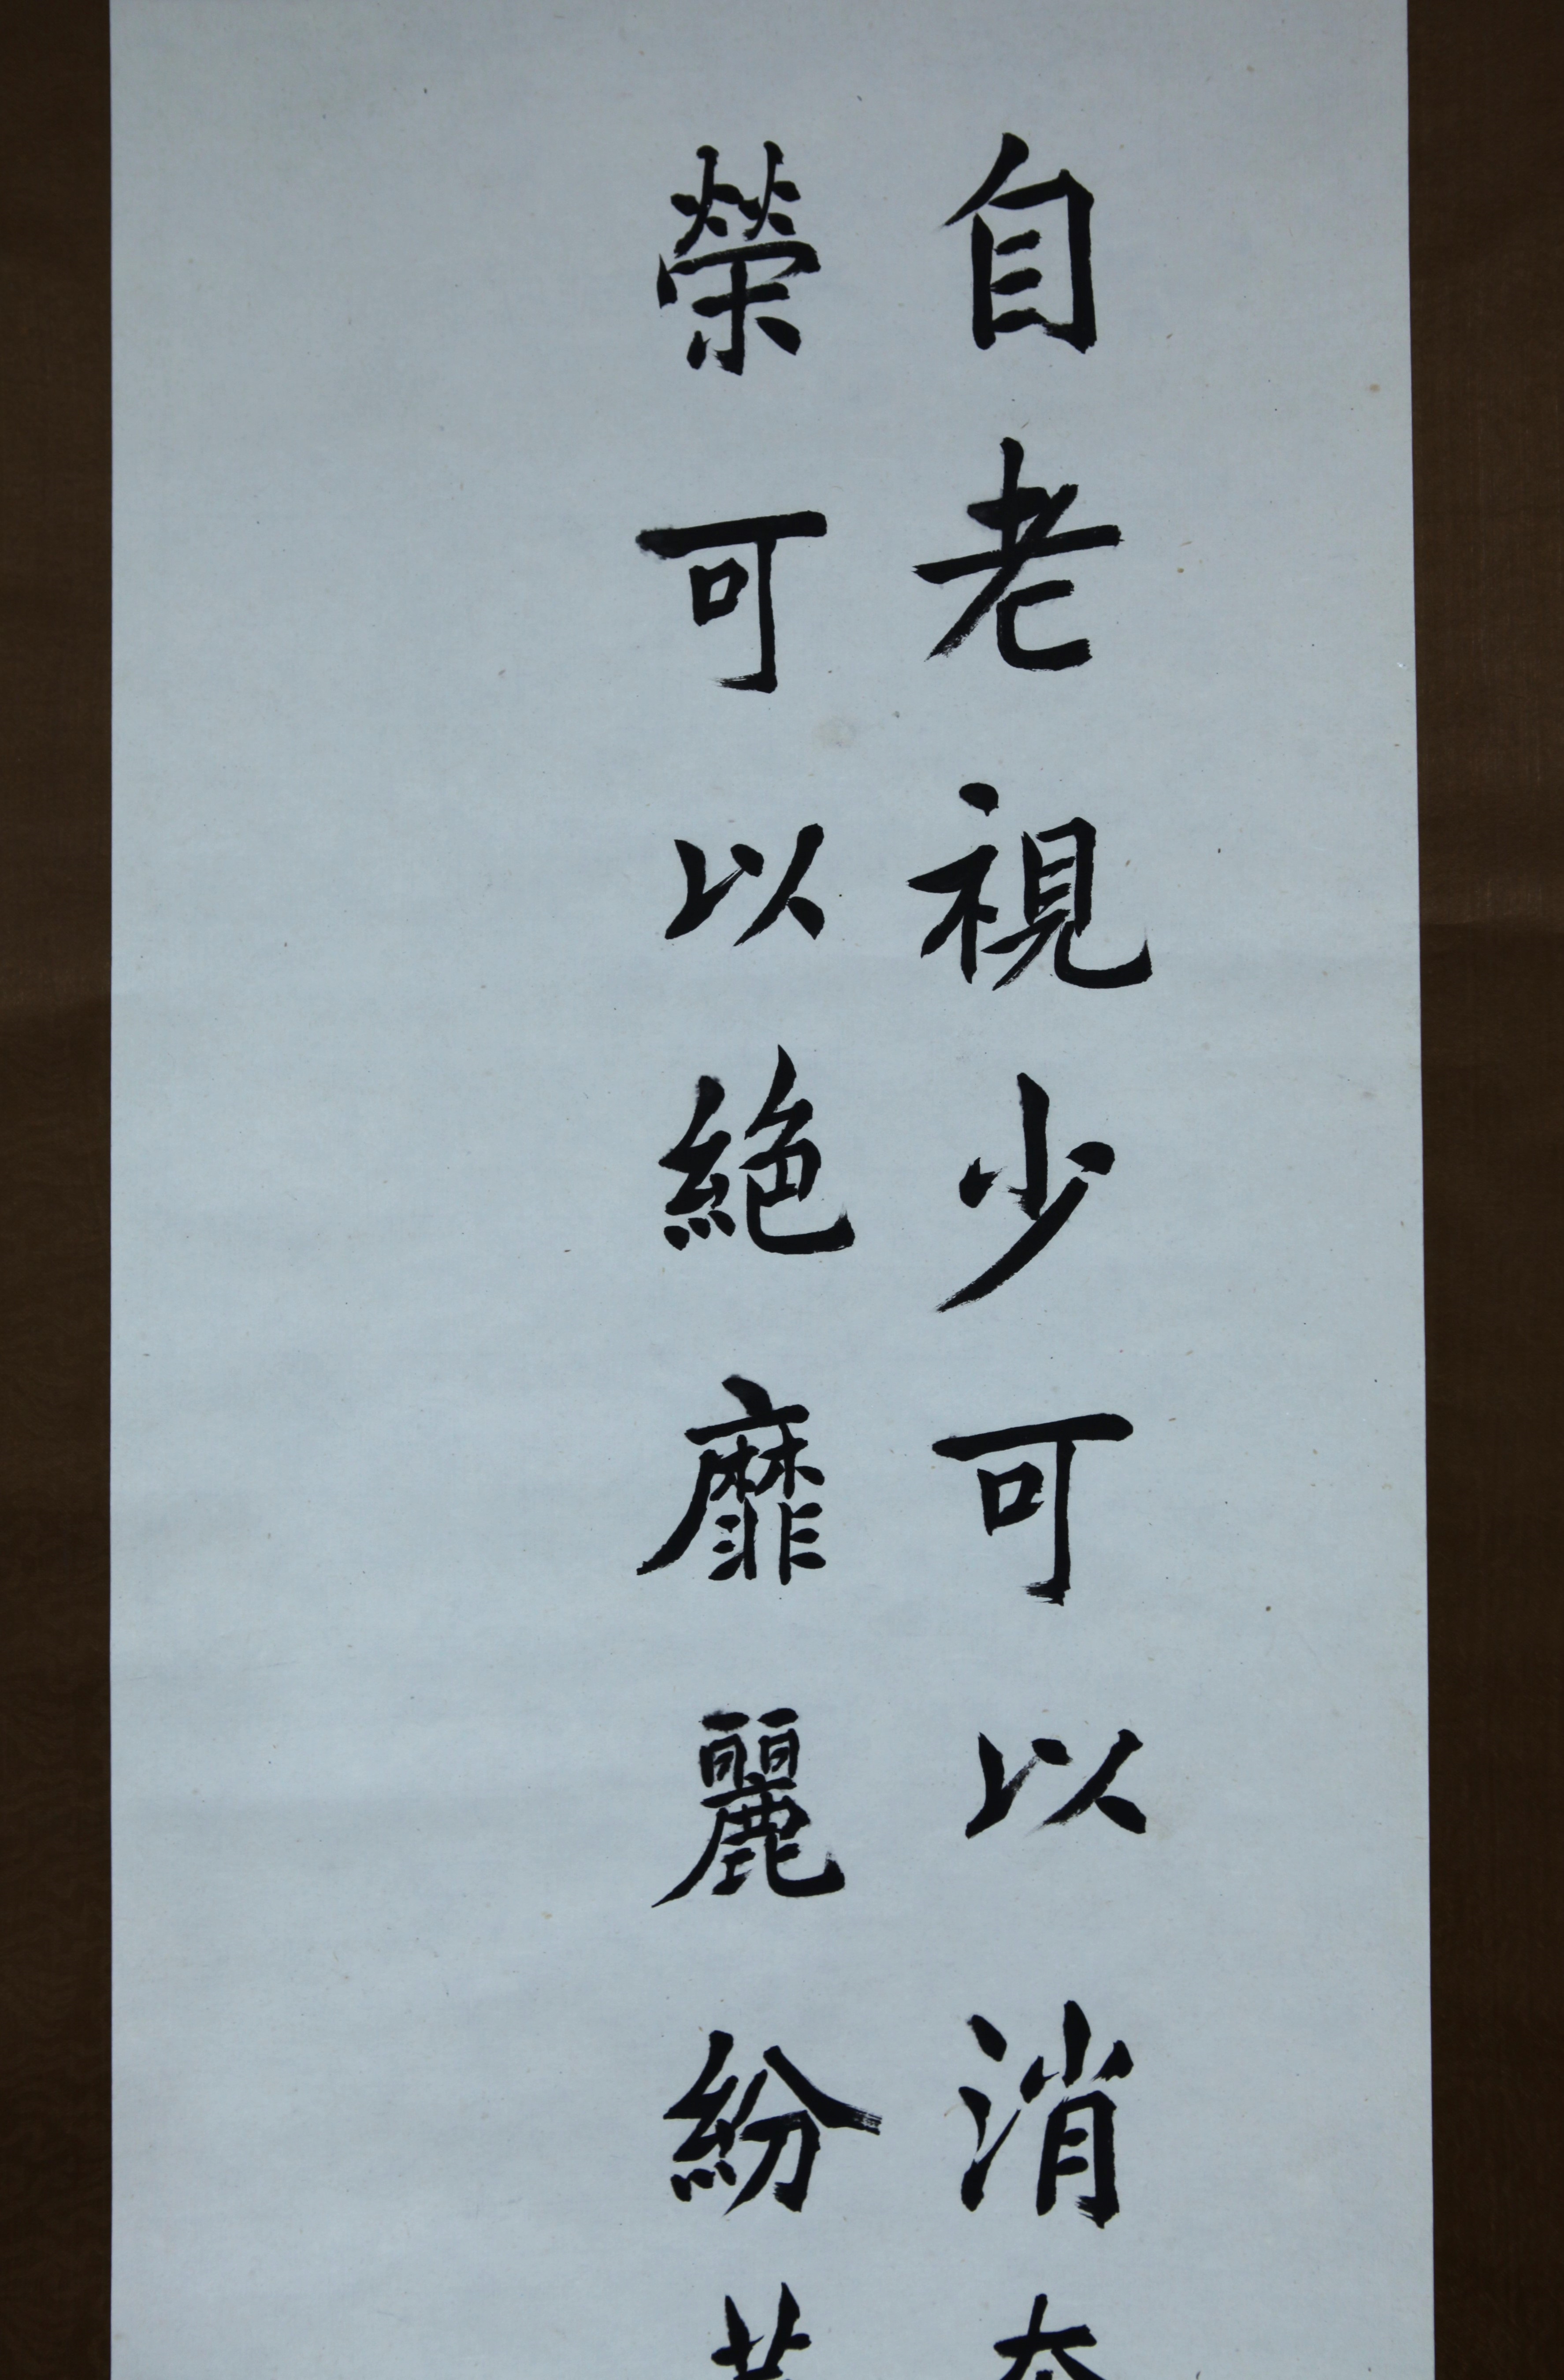 自老視少可以消
榮可以絕靡麗紛